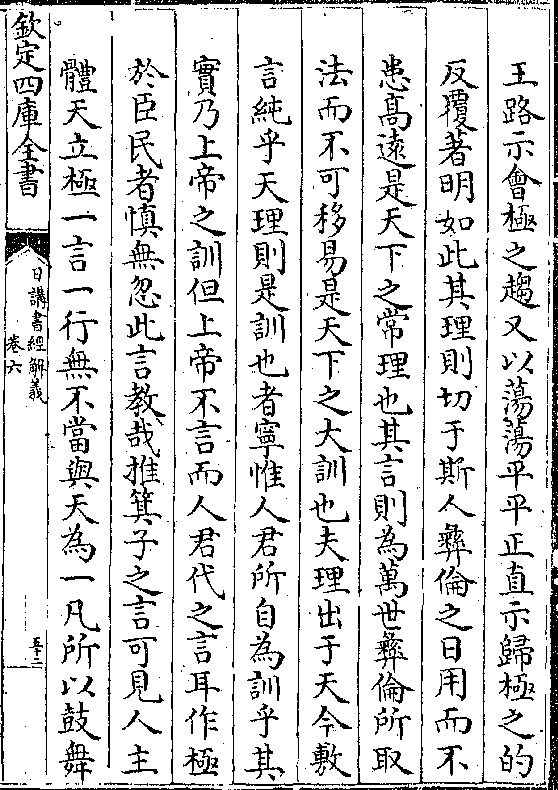 王路示會極之趨又以蕩蕩平平正直示歸極之的
反覆著明如此其理則切于斯人彝倫之日用而不
患高遠是天下之常理也其言則為萬世彝倫所取
法而不可移易是天下之大訓也夫理出于天今敷
言純乎天理則是訓也者寧惟人君所自為訓乎其
實乃上帝之訓但上帝不言而人君代之言耳作極
於臣民者慎無忽此言教哉推箕子之言可見人主
體天立極一言一行無不當與天為一凡所以鼓舞
欽定四庫全書
日講書經解義
卷六
五十二